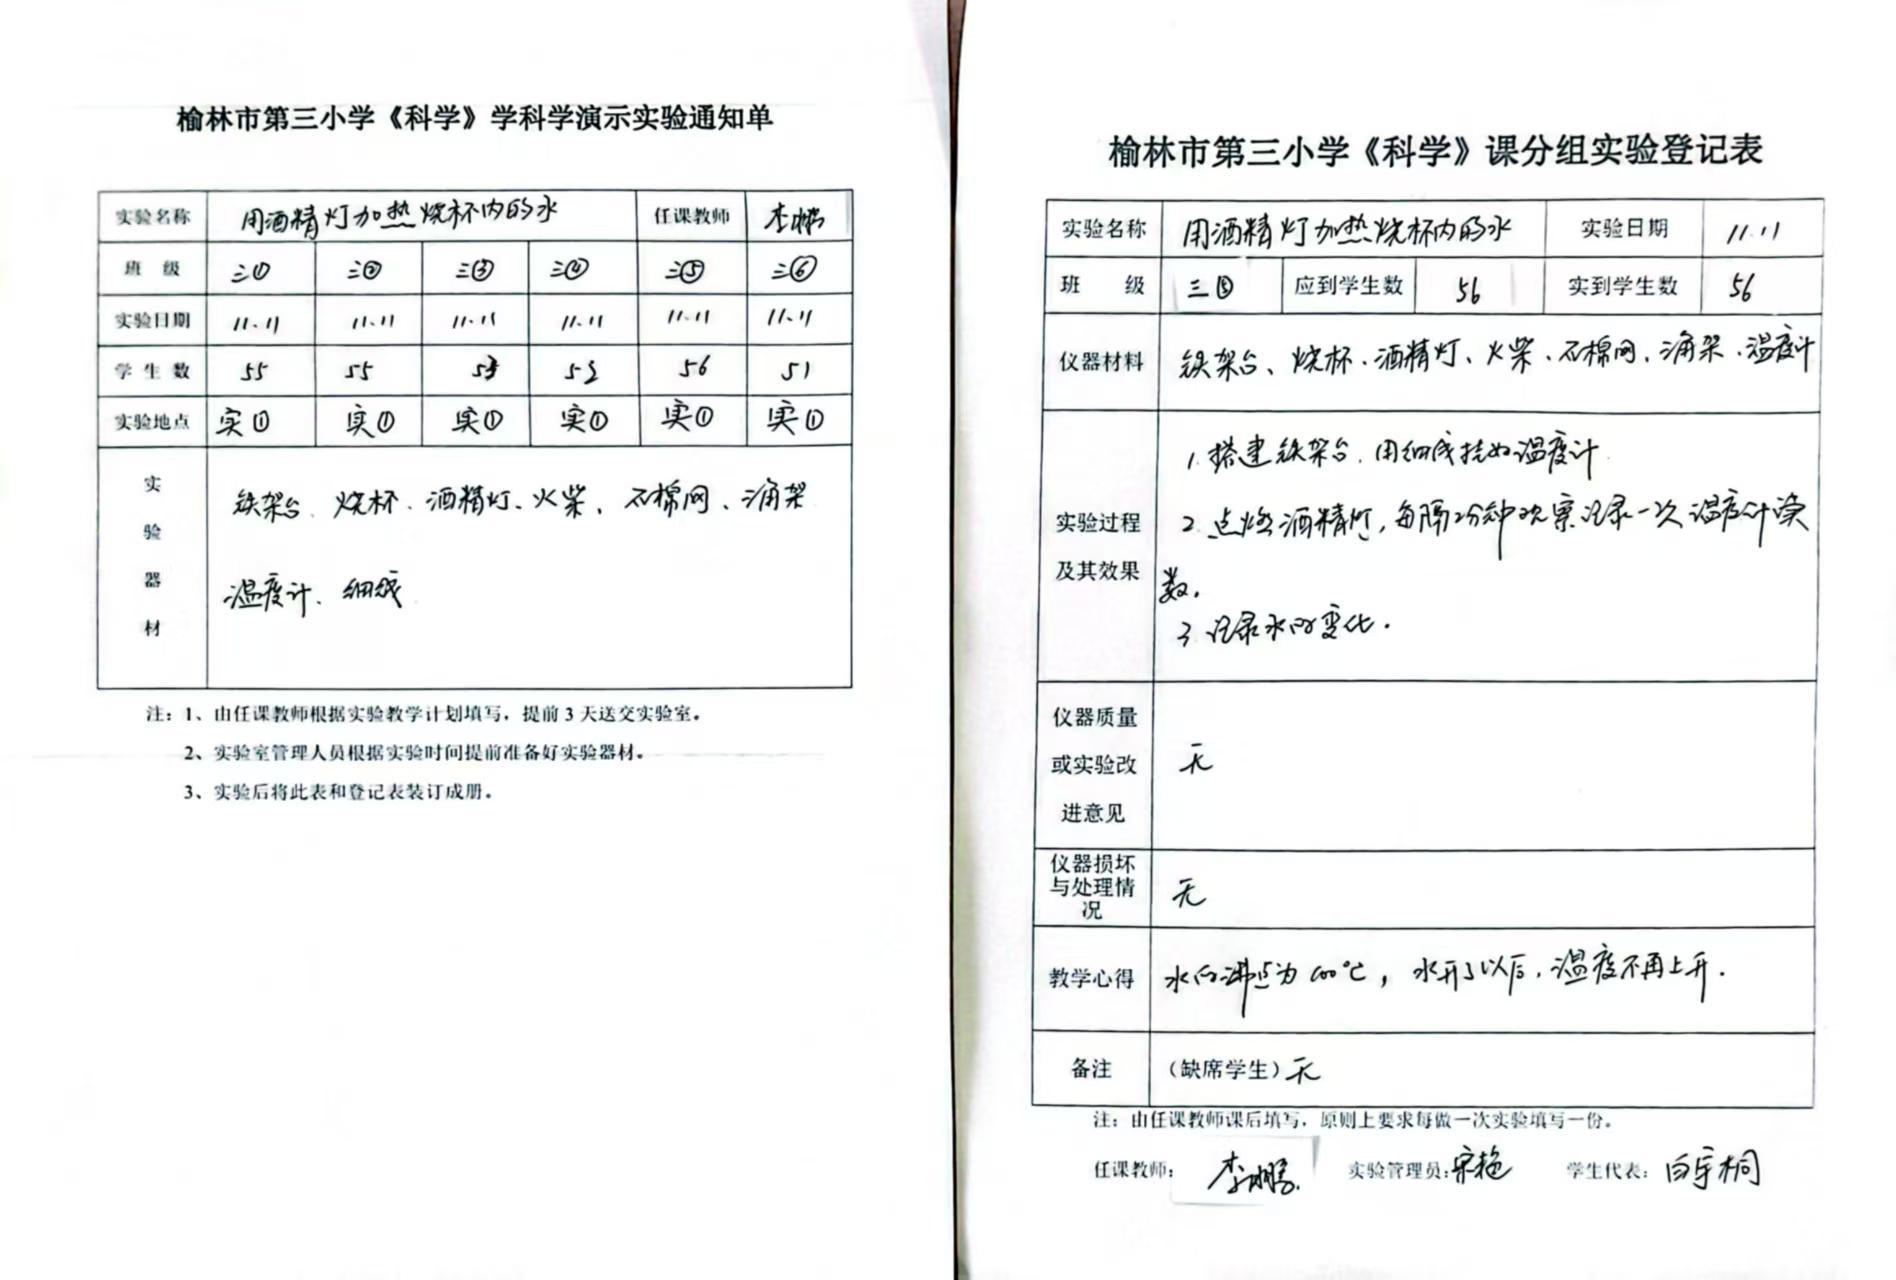 榆林市第三小学《科学》学科学演示实验通知单
实验名称 用酒精灯加热烧杯内的水 任课教师 李鹏
班级 三① 三② 三③ 三④ 三⑤ 三⑥
实验日期 11.11 11.11 11.11 11.11 11.11 11.11
学生数 55 55 53 52 56 51
实验地点 实① 实① 实① 实① 实① 实①
实验器材
铁架台、烧杯、酒精灯、火柴、石棉网、三角架
温度计、细线
注：1、由任课教师根据实验教学计划填写，提前3天送交实验室。
2、实验室管理人员根据实验时间提前准备好实验器材。
3、实验后将此表和登记表装订成册。
榆林市第三小学《科学》课分组实验登记表
实验名称 用酒精灯加热烧杯内的水 实验日期 11.11
班级 三⑤ 应到学生数 56 实到学生数 56
仪器材料 铁架台、烧杯、酒精灯、火柴、石棉网、三角架、温度计
实验过程及其效果
1. 搭建铁架台，用细线挂好温度计
2. 点燃酒精灯，每隔2分钟观察记录一次温度计读
数。
3. 记录水的变化.
仪器质量或实验改进意见 无
仪器损坏与处理情况 无
教学心得 水的沸点为100℃，水开了以后，温度不再上升.
备注 （缺席学生）无
注：由任课教师课后填写，原则上要求每做一次实验填写一份。
任课教师：李鹏 实验管理员：宋艳 学生代表：白宇桐